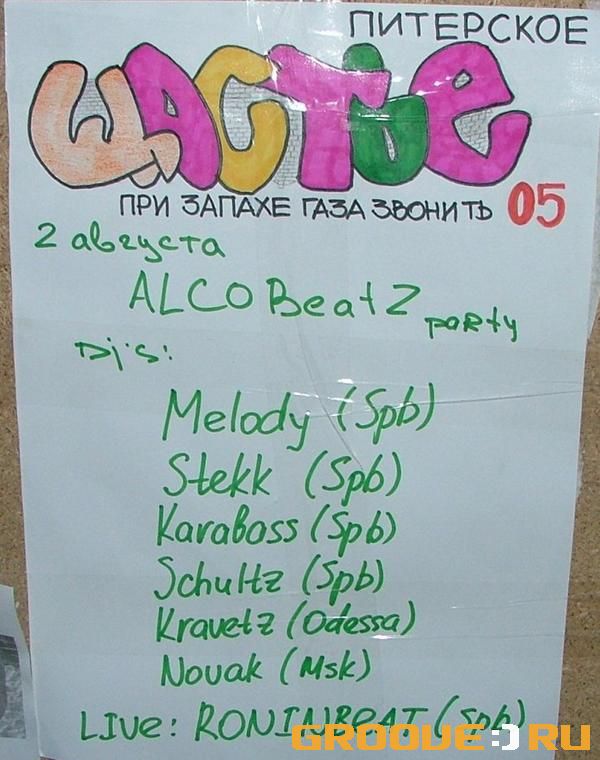 ПИТЕРСКОЕ
ЩАСТЬЕ
ПРИ ЗАПАХЕ ГАЗА ЗВОНИТЬ 05
2 августа
ALCOBeatZ party
Dj's:
Melody (Spb)
Stekk (Spb)
Karabass (Spb)
Schultz (Spb)
Kravetz (Odessa)
Novak (Msk)
Live: RONINBEAT (Spb)
GROOVE:)RU